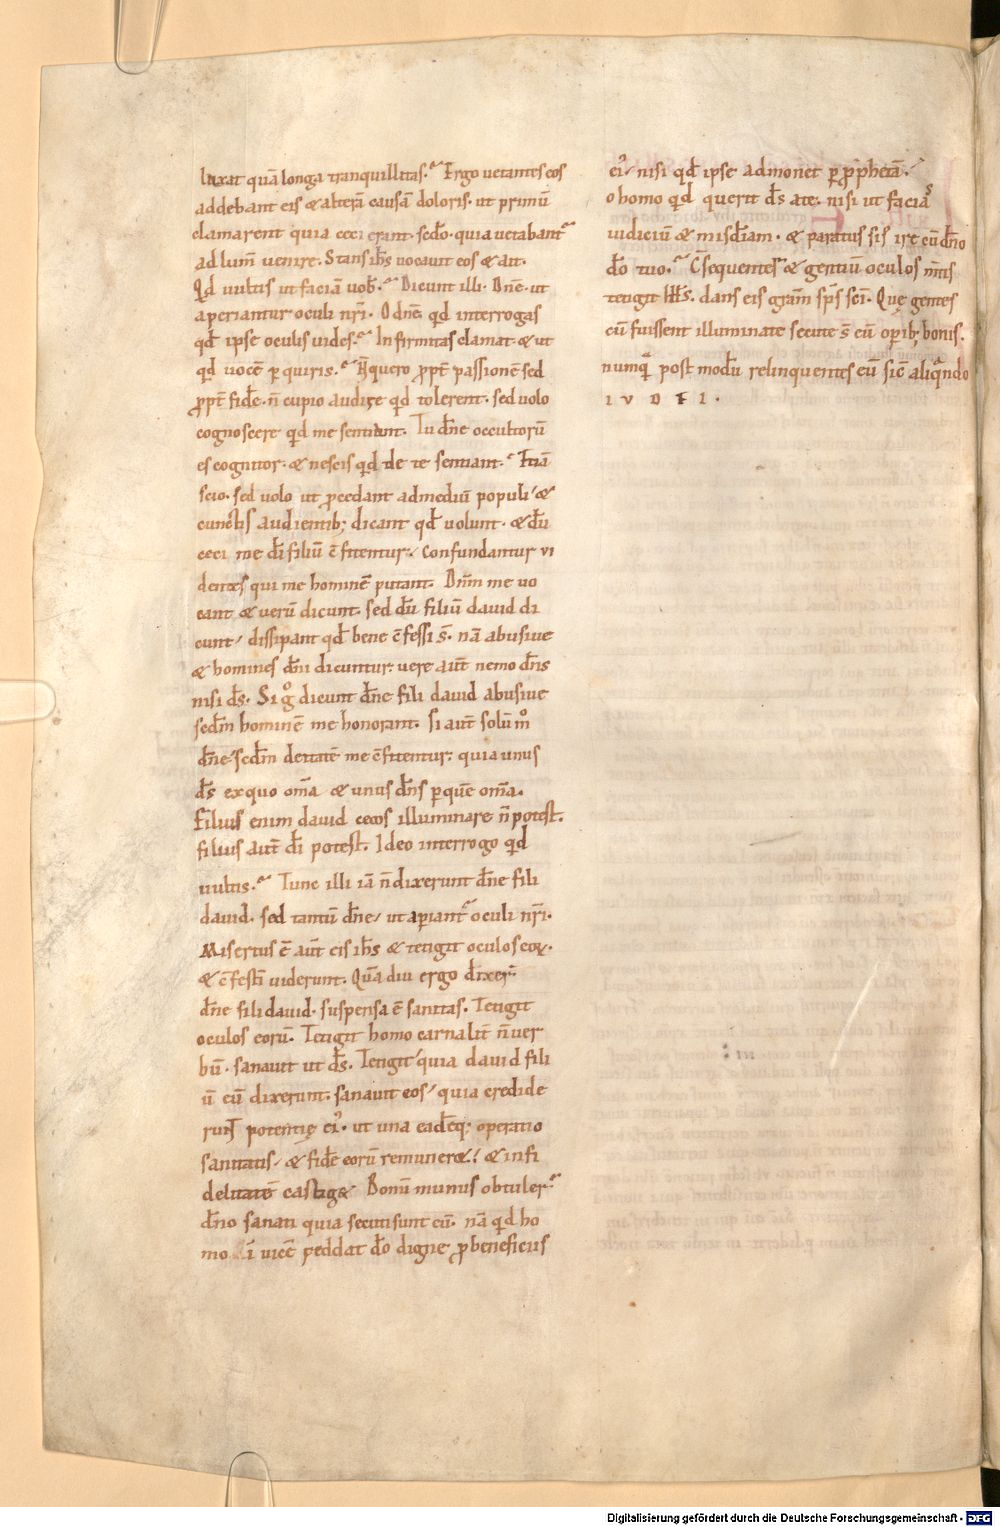 luxat quā longa tranquillitas. Ergo uetantes eos
addebant eis & alterā causā doloris. ut primū
clamarent quia ceci erant. sedo. quia uetabant᷑
ad lum̄ uenire. Stans ih̄s uocauit eos & ait.
Qd̄ uultis ut faciā uob̄. Dicunt illi. Dn̄e. ut
aperiantur oculi nr̄i. O dn̄e qd̄ interrogas
qd̄ ipse oculis uides. Infirmitas clamat. & ut
qd̄ uocē ꝑquiris. quero ꝓpt̄ passionē sed
ꝓpt̄ fidē. n̄ cupio audire qd̄ tolerent. sed uolo
cognoscere qd̄ me sentiunt. Tu dn̄e occultorū
es cognitor. & nescis qd̄ de te sentiant. Etiā
scio. sed uolo ut ꝓcedant admediū populi. &
cunctis audientib; dicant qd̄ uolunt. & dū
ceci me dī filiū c̄fitentur. confundantur vi
dentes qui me hominē putant. Dn̄m me uo
cant & uerū dicunt. sed dū filiū dauid di
cunt. dissipant qd̄ bene c̄fessi s̄. nā abusiue
& homines dn̄i dicuntur. uere aut̄ nemo dn̄s
nisi ds̄. Si gͦ dicunt dn̄e fili dauid abusiue
scdm̄ hominē me honorant. Si aut̄ solūmͦ
dn̄e. scdm̄ deitatē me c̄fitentur. quia unus
ds̄ ex quo om̄a & unus dn̄s ꝑquē om̄a.
Filius enim dauid cecos illuminare n̄ potest.
filius aut̄ dī potest. Ideo interrogo qd̄
uultis. Tunc illi iā n̄ dixerunt dn̄e fili
dauid. sed tantū dn̄e. ut apiant᷑ oculi nr̄i.
Misertus ē aut̄ eis ih̄s & tetigit oculos eoꝝ.
& c̄festī uiderunt. Quādiu ergo dixer᷑
dn̄e fili dauid. suspensa ē sanitas. Tetigit
oculos eorū. Tetigit homo carnalit̄ n̄ ver
bū. sanauit ut ds̄. Tetigit quia dauid fili
ū eū dixerunt. sanauit eos. quia credide
runt potentię eiꝰ. ut una eadēq; operatio
sanitatis. & fidē eorū remuneret. & infi
delitatē castiget Bonū munus obtuler᷑
dn̄o sanati quia secuti sunt eū. nā qd̄ ho
mo ī vicē reddat do digne ꝓ beneficiis
eiꝰ. nisi qd̄ ipse admonet ꝑ ꝓphetā.
o homo qd̄ querit ds̄ ate. nisi ut facias
iudiciū & misd̄iam. & paratus sis ire cū dn̄o
do tuo. C̄sequentes & gentiū oculos mītis
tetigit . dans eis grām sps̄ scī. Quę gentes
cū fuissent illuminate secute s̄ cū oꝑib; bonis.
numꝗ̄ post modū relinquentes eū sic̄ aliqn̄do
i v d ę i.
Digitalisierung gefördert durch die Deutsche Forschungsgemeinschaft - DFG